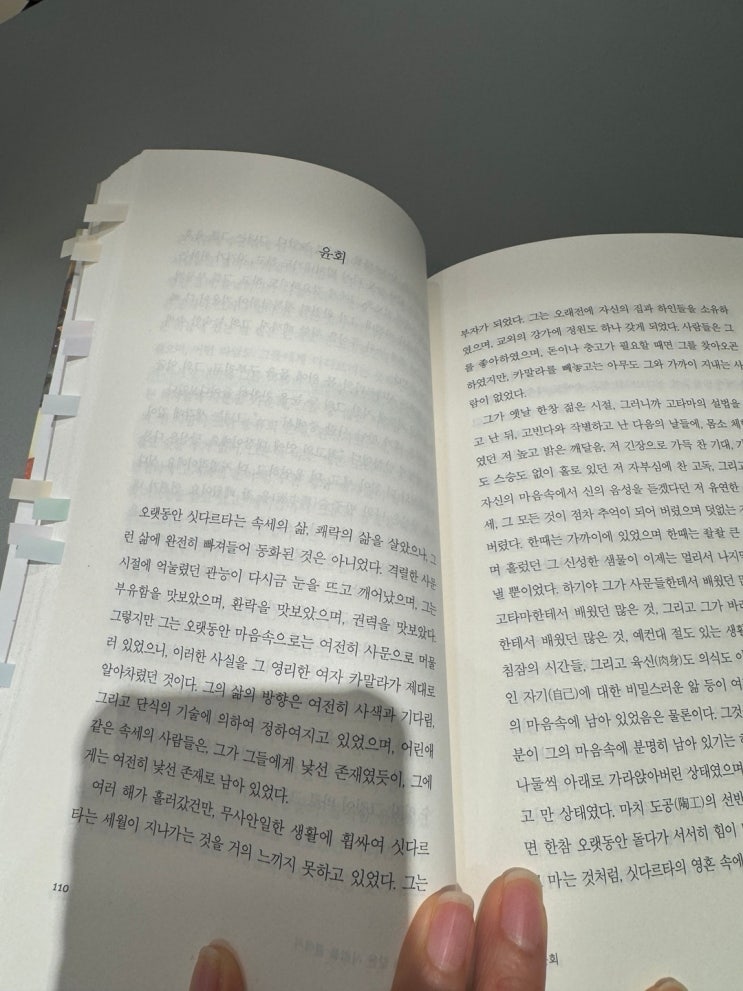 윤회
오랫동안 싯다르타는 속세의 삶, 쾌락의 삶을 살았으나, 그
런 삶에 완전히 빠져들어 동화된 것은 아니었다. 격렬한 사문
시절에 억눌렸던 관능이 다시금 눈을 뜨고 깨어났으며, 그는
부유함을 맛보았으며, 환락을 맛보았으며, 권력을 맛보았다.
그렇지만 그는 오랫동안 마음속으로는 여전히 사문으로 머물
러 있었으니, 이러한 사실을 그 영리한 여자 카말라가 제대로
알아차렸던 것이다. 그의 삶의 방향은 여전히 사색과 기다림,
그리고 단식의 기술에 의하여 정하여지고 있었으며, 어린애
같은 속세의 사람들은, 그가 그들에게 낯선 존재였듯이, 그에
게는 여전히 낯선 존재로 남아 있었다.
여러 해가 흘러갔건만, 무사안일한 생활에 휩싸여 싯다르
타는 세월이 지나가는 것을 거의 느끼지 못하고 있었다. 그는
110
부자가 되었다. 그는 오래전에 자신의 집과 하인들을 소유하
였으며, 교외의 강가에 정원도 하나 갖게 되었다. 사람들은 그
를 좋아하였으며, 돈이나 충고가 필요할 때면 그를 찾아오곤
하였지만, 카말라를 빼놓고는 아무도 그와 가까이 지내는 사
람이 없었다.
그가 옛날 한창 젊은 시절, 그러니까 고타마의 설법을
고 난 뒤, 고빈다와 작별하고 난 다음의 날들에, 몸소
였던 저 높고 밝은 깨달음, 저 긴장으로 가득 찬 기대,
도 스승도 없이 홀로 있던 저 자부심에 찬 고독, 그리고
자신의 마음속에서 신의 음성을 듣겠다던 저 유연한
세, 그 모든 것이 점차 추억이 되어 버렸으며 덧없는
버렸다. 한때는 가까이에 있었으며 한때는 콸콸 큰
며 흘렀던 그 신성한 샘물이 이제는 멀리서 나지막
낼 뿐이었다. 하기야 그가 사문들한테서 배웠던
고타마한테서 배웠던 많은 것, 그리고 그가
한테서 배웠던 많은 것, 예컨대 절도 있는
침잠의 시간들, 그리고 육신(肉身)도 의식도
인 자기(自己)에 대한 비밀스러운 앎 등이
의 마음속에 남아 있었음은 물론이다. 그것
분이 그의 마음속에 분명히 남아 있기는
나둘씩 아래로 가라앉아버린 상태였으며
고 만 상태였다. 마치 도공(陶工)의 선반
면 한참 오랫동안 돌다가 서서히 힘이
마는 것처럼, 싯다르타의 영혼 속에
회